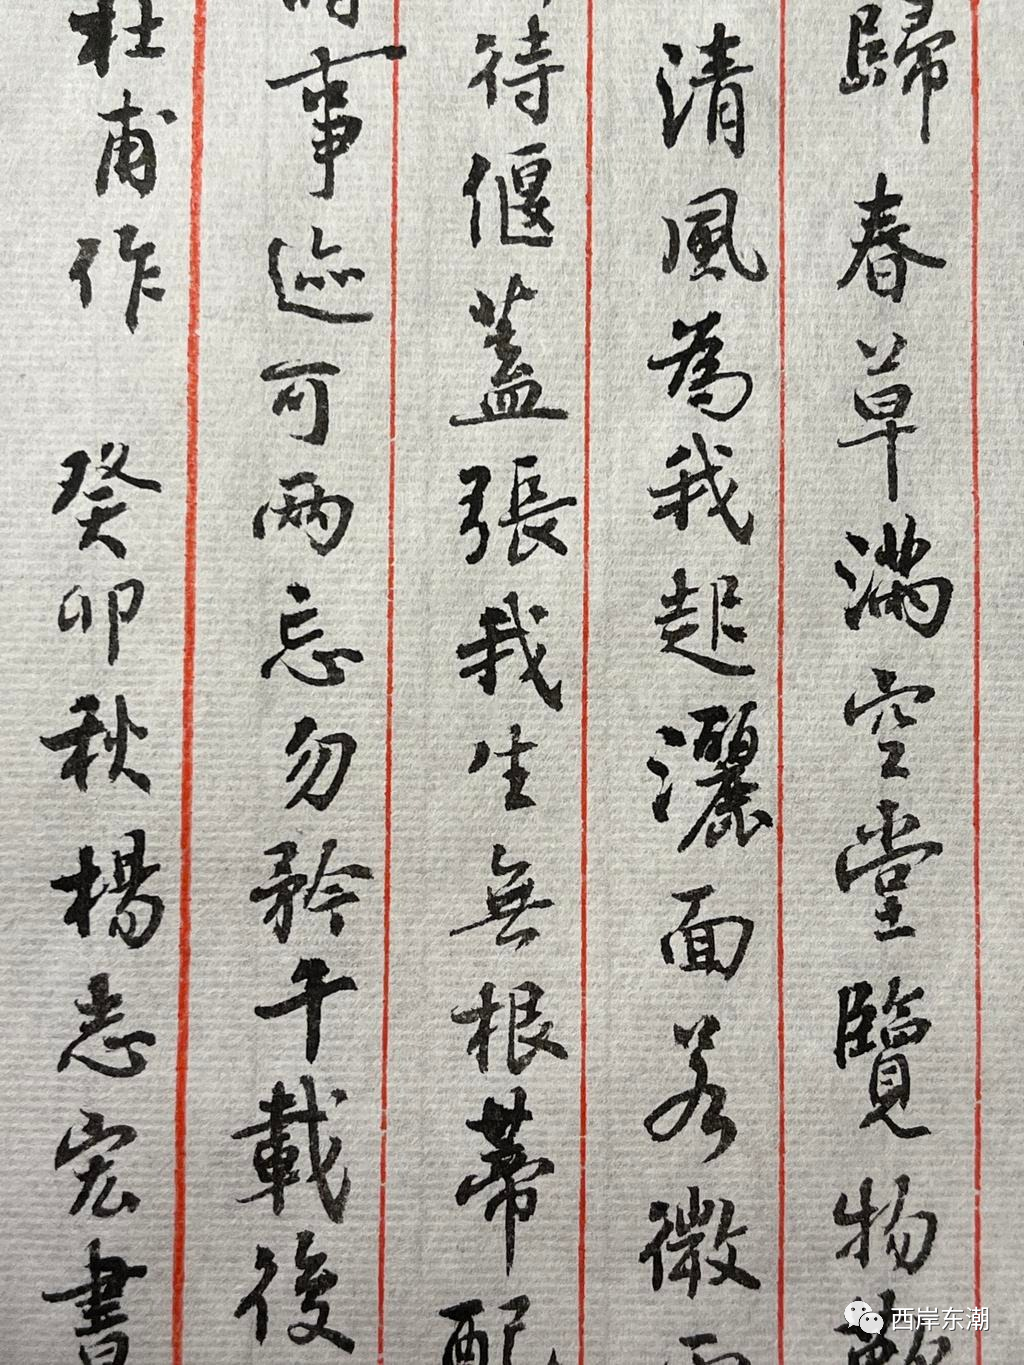 歸春草滿空堂覽物
清風為我起灑面若微
待偃蓋張我生無根蒂配
事迹可兩忘勿矜千載後
杜甫作 癸卯秋楊志宏書
西岸东潮